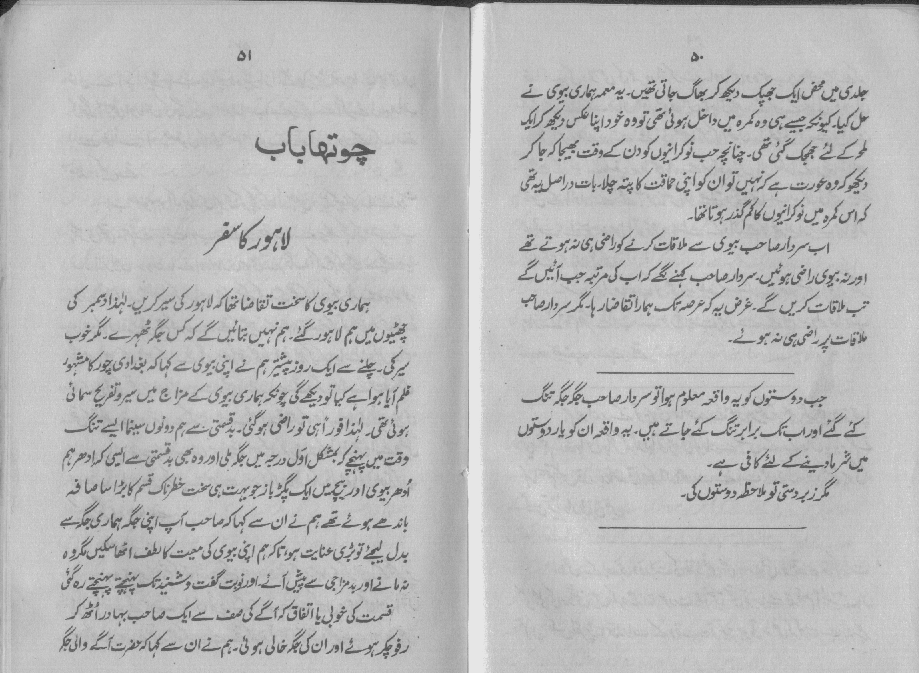 ۵۰
جلدی میں محض ایک جھپک دیکھ کر بھاگ جاتی تھیں۔ یہ معمہ ہماری بیوی نے
حل کیا۔ کیونکہ جیسے ہی وہ کمرہ میں داخل ہوئی تھی تو وہ خود اپنا عکس دیکھ کر ایک
لمحہ کے لئے جھجک گئی تھی۔ چنانچہ جب نوکرانیوں کو دن کے وقت بھیجا کہ جا کر
دیکھو کہ وہ عورت ہے کہ نہیں تو ان کو اپنی حماقت کا پتہ چلا۔ بات دراصل یہ تھی
کہ اس کمرہ میں نوکرانیوں کا کم گذر ہوتا تھا۔
اب سردار صاحب بیوی سے ملاقات کرنے کو راضی ہی نہ ہوتے تھے
اور نہ بیوی راضی ہوئیں۔ سردار صاحب کہنے لگے کہ اب کی مرتبہ جب آئیں گے
تب ملاقات کریں گے۔ غرض یہ کہ عرصہ تک ہمارا تقاضا رہا۔ مگر سردار صاحب
ملاقات پر راضی ہی نہ ہوئے۔
جب دوستوں کو یہ واقعہ معلوم ہوا تو سردار صاحب جگہ جگہ تنگ
کئے گئے اور اب تک برابر تنگ کئے جاتے ہیں۔ یہ واقعہ ان کو یار دوستوں
میں شرما دینے کے لئے کافی ہے۔
مگر زبردستی تو ملاحظہ دوستوں کی۔
۵۱
چوتھا باب
لاہور کا سفر
ہماری بیوی کا سخت تقاضا تھا کہ لاہور کی سیر کریں۔ لہٰذا دسمبر کی
چھٹیوں میں ہم لاہور گئے۔ ہم نہیں بتائیں گے کہ کس جگہ ٹھہرے۔ مگر خوب
سیر کی۔ چلنے سے ایک روز پیشتر ہم نے اپنی بیوی سے کہا کہ بغدادی چور کا مشہور
فلم آیا ہوا ہے کیا تو دیکھے گی چونکہ ہماری بیوی کے مزاج میں سیر و تفریح سمائی
ہوئی تھی۔ لہٰذا فوراً ہی تو راضی ہوگئی۔ بدقسمتی سے ہم دونوں سینما ایسے تنگ
وقت میں پہنچے کہ بمشکل اوّل درجہ میں جگہ ملی اور وہ بھی بدقسمتی سے ایسی کہ اِدھر ہم
اُدھر بیوی اور بیچ میں ایک پگڑ باز جو بہت ہی سخت خطرناک قسم کا بڑا سا صافہ
باندھے ہوئے تھے ہم نے ان سے کہا کہ صاحب آپ اپنی جگہ ہماری جگہ سے
بدل لیجئے تو بڑی عنایت ہو تاکہ ہم اپنی بیوی کی معیت کا لطف اٹھا سکیں مگر وہ
نہ مانے اور بدمزاجی سے پیش آئے۔ اور نوبت گفت و شنید تک پہنچتے پہنچتے رہ گئی
قسمت کی خوبی یا اتفاق کہ آگے کی صف سے ایک صاحب بہادر اُٹھ کر
رفو چکر ہوئے اور ان کی جگہ خالی ہوئی۔ ہم نے ان سے کہا کہ حضرت آگے والی جگہ